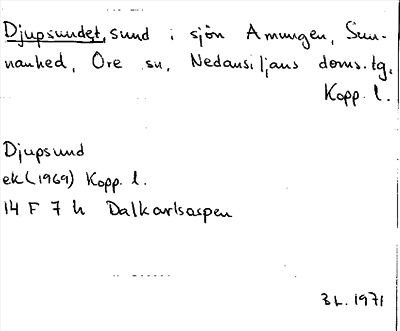 Djupsundet, sund i sjön Amungen, Sun-
nanhed, Ore sn, Nedansiljans doms.tg,
Kopp. l.
Djupsund
ek (1969) Kopp. l.
14 F 7 h Dalkarlsaspen
BL. 1971